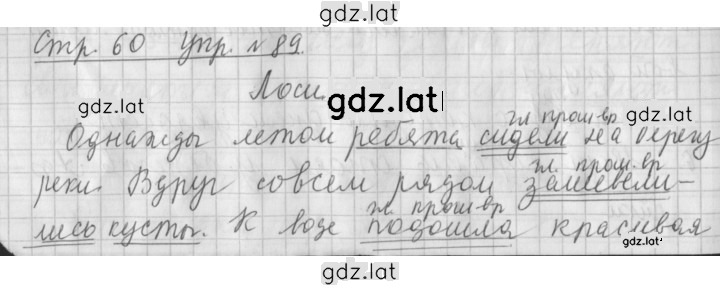 gdz.lat
Стр. 60 Упр. №89.
Лоси.
gdz.lat
gdz.lat
gdz.lat
гл. прош. вр
Однажды летом ребята сидели на берегу
гл. прош. вр
реки. Вдруг совсем рядом зашевели-
гл. прош. вр
лись кусты. К воде подошла красивая
gdz.lat
gdz.lat